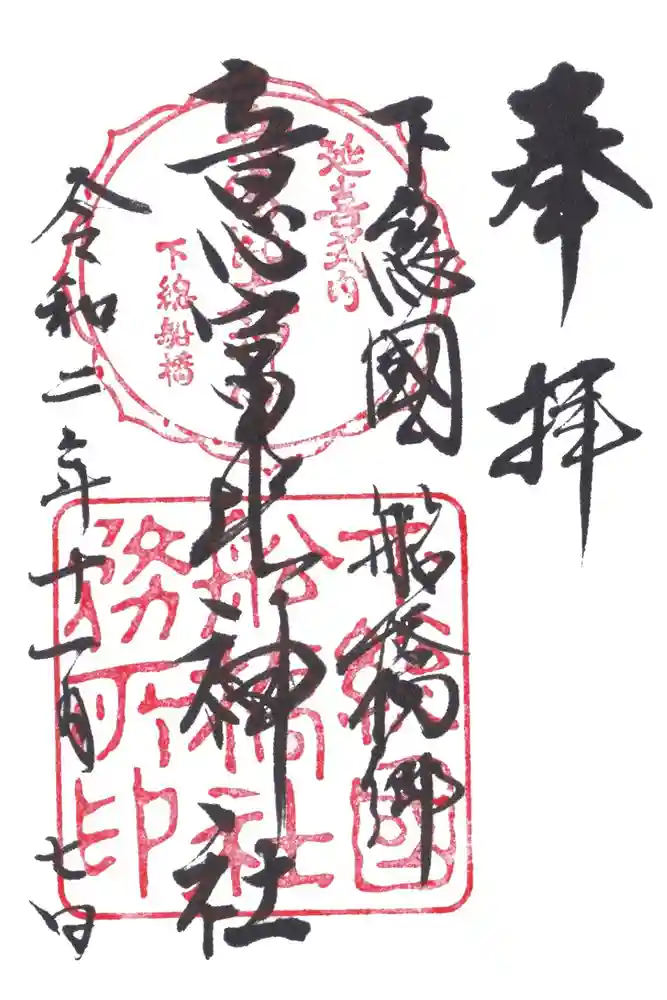 奉拝
下総國 船橋郷
意富比神社
令和二年十一月七日
延喜式内
下総船橋
下總國
船橋社
務所印